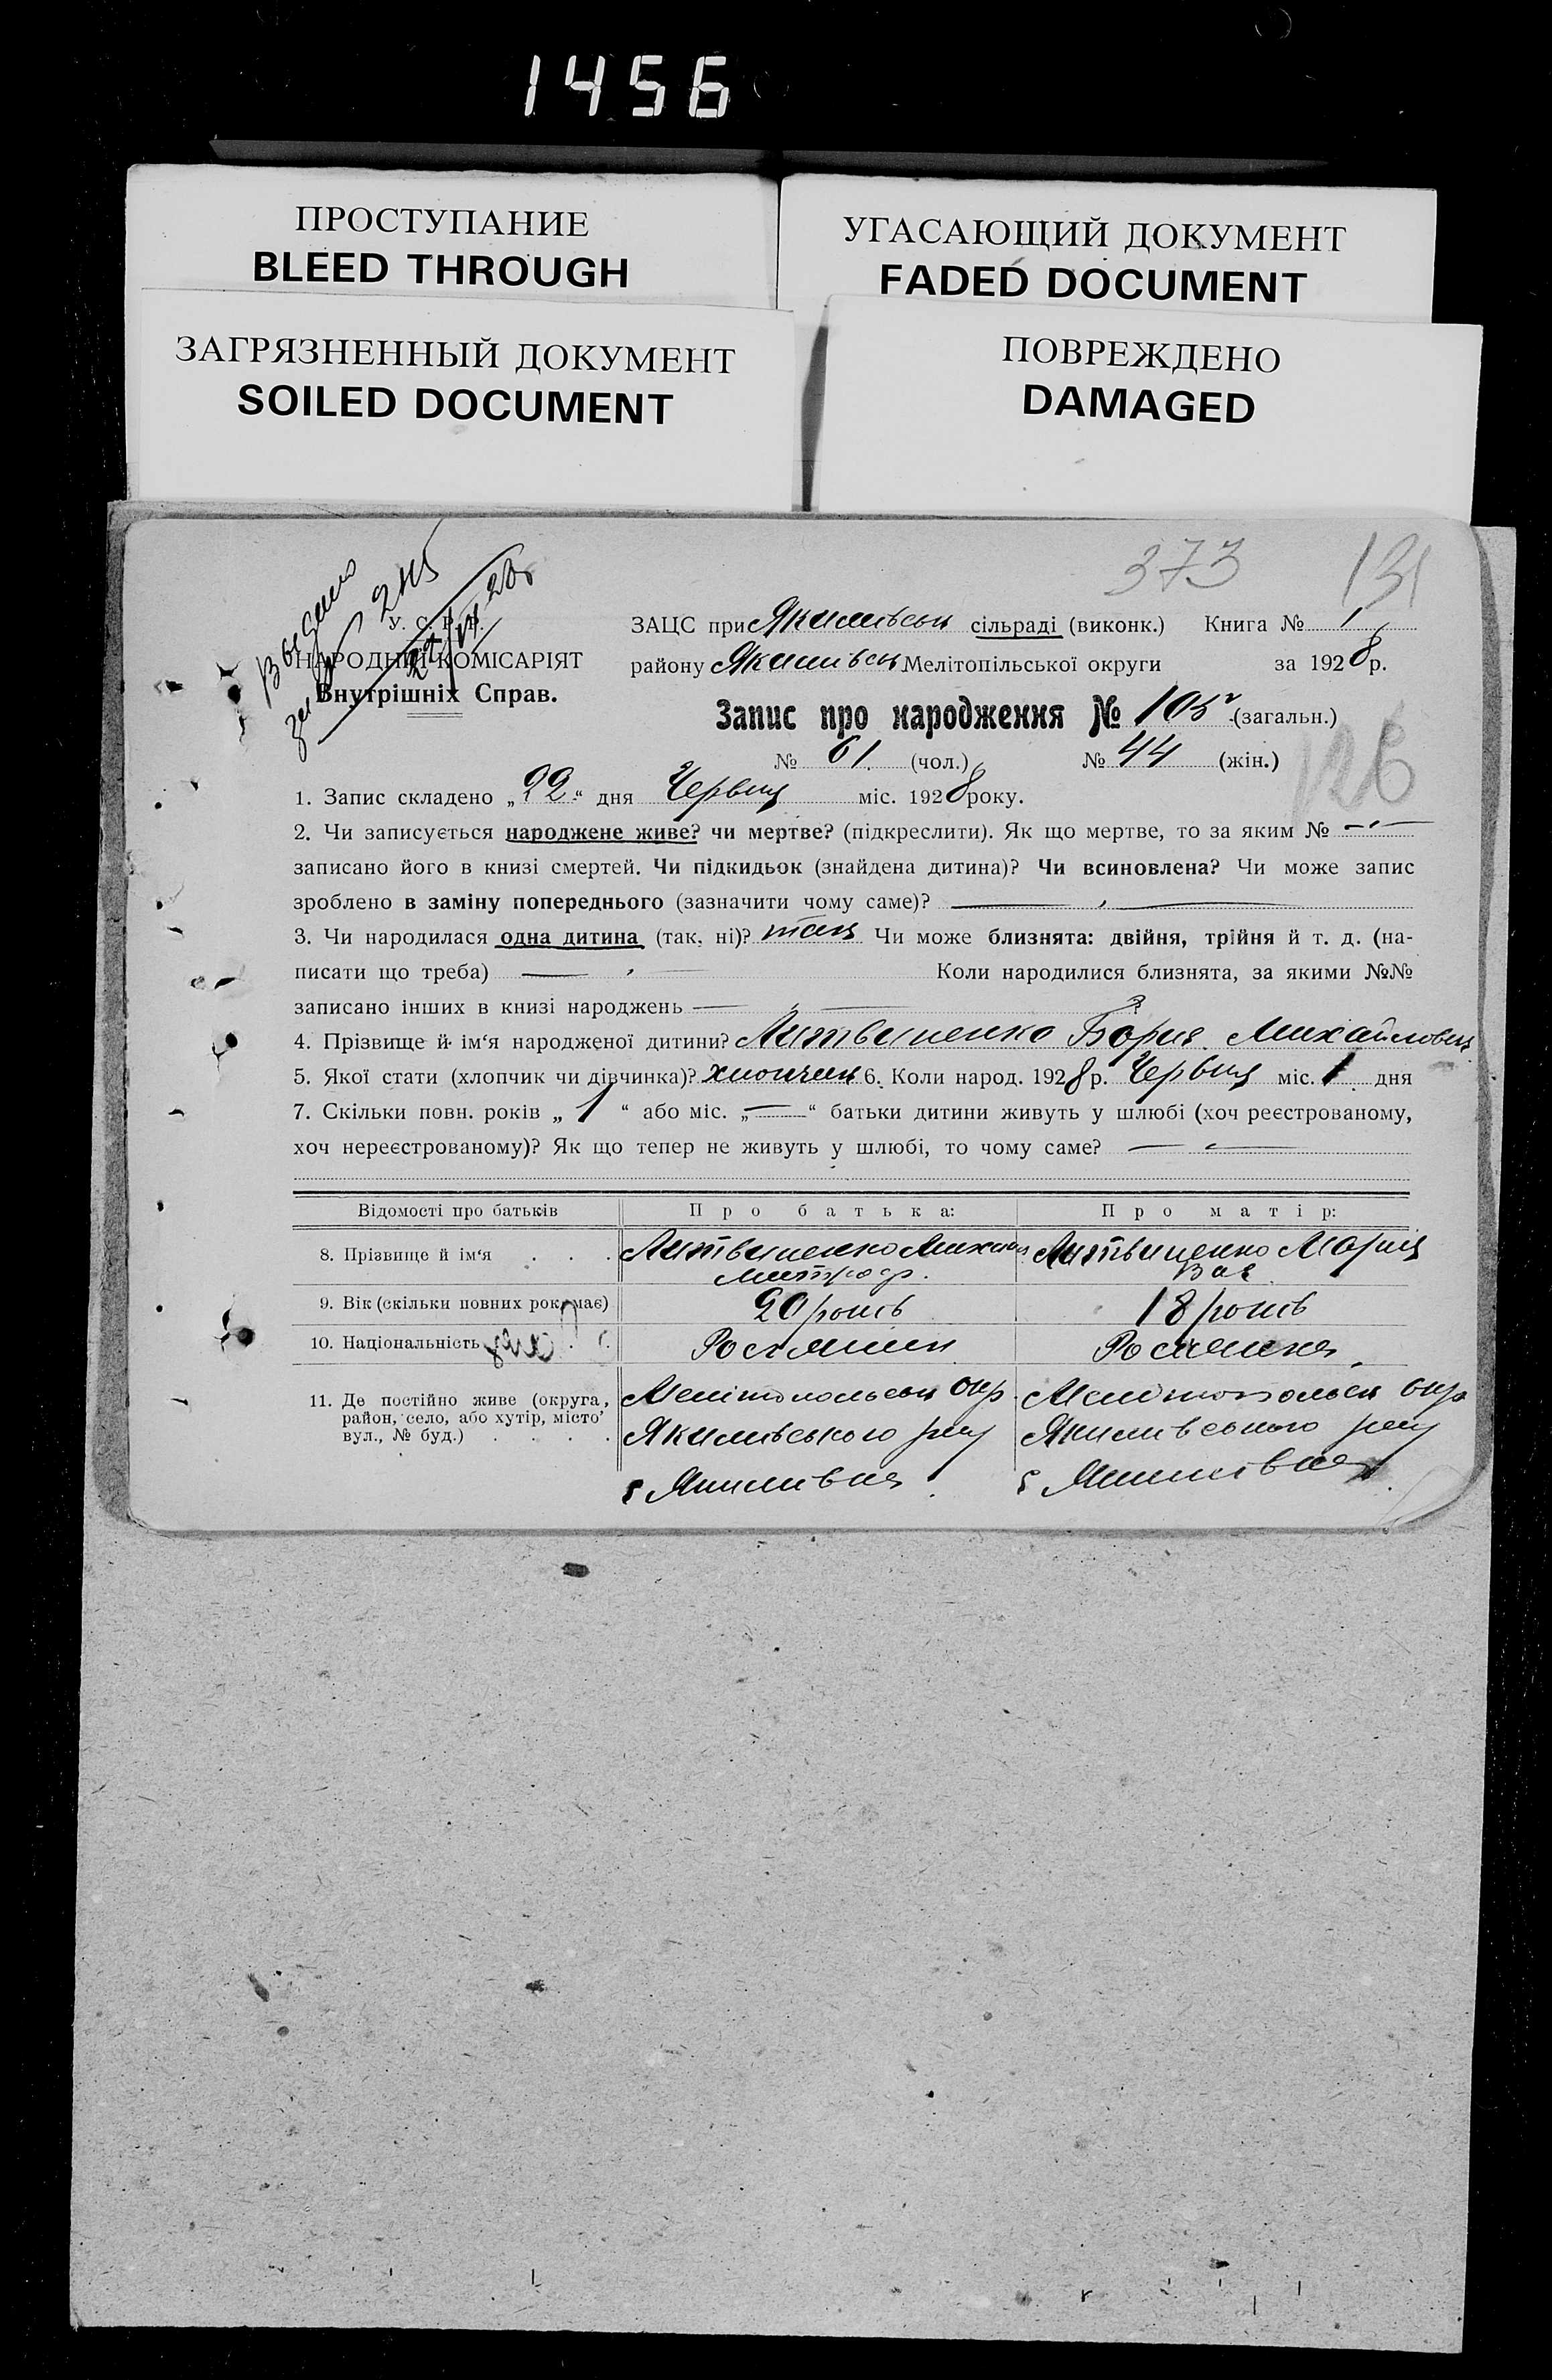 1456
ПРОСТУПАНИЕ
BLEED THROUGH
УГАСАЮЩИЙ ДОКУМЕНТ
FADED DOCUMENT
ЗАГРЯЗНЕННЫЙ ДОКУМЕНТ
SOILED DOCUMENT
ПОВРЕЖДЕНО
DAMAGED
373 131
У. С. Р. Р.
НАРОДНИЙ КОМІСАРІЯТ
Внутрішніх Справ.
ЗАЦС при Якимівськ сільраді (виконк.) Книга № 1
району Якимівськ Мелітопільської округи за 1928 р.
Запис про народження № 105 (загальн.)
№ 61 (чол.) № 44 (жін.)
126
1. Запис складено „22“ дня Червця міс. 1928 року.
2. Чи записується народжене живе? чи мертве? (підкреслити). Як що мертве, то за яким №
записано його в книзі смертей. Чи підкидьок (знайдена дитина)? Чи всиновлена? Чи може запис
зроблено в заміну попереднього (зазначити чому саме)?
3. Чи народилася одна дитина (так, ні)? так Чи може близнята: двійня, трійня й т. д. (на-
писати що треба) Коли народилися близнята, за якими №№
записано інших в книзі народжень
4. Прізвище й ім‘я народженої дитини? Литвиненко Борис Михайлович
5. Якої стати (хлопчик чи дівчинка)? хлопчик 6. Коли народ. 1928 р. Червця міс. 1 дня
7. Скільки повн. років „ 1 “ або міс. „—“ батьки дитини живуть у шлюбі (хоч реєстрованому,
хоч нереєстрованому)? Як що тепер не живуть у шлюбі, то чому саме?
Відомості про батьків Про батька: Про матір:
8. Прізвище й ім‘я . . . Литвиненко Михаил Литвиненко Мария
Митроф. Вас
9. Вік (скільки повних рок. має) 20 років 18 років
10. Національність Росіянин Росіянка
11. Де постійно живе (округа, Мелітопольськ окр. Мелітопольськ окр
район, село, або хутір, місто Якимівського рну Якимівського рну
вул., № буд.) . . . .
с Якимівка с Якимівка